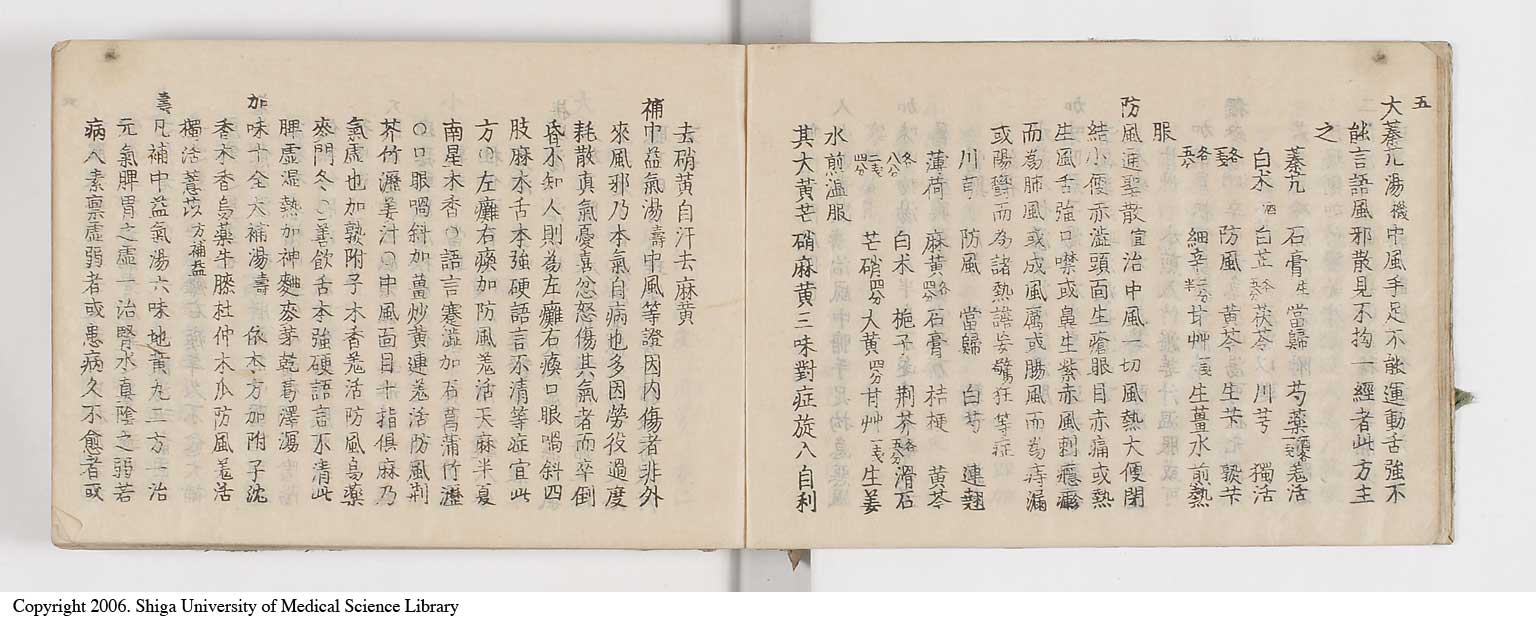 五
大秦艽湯機中風手足不能運動舌強不
能言語風邪散見不拘一經者此方主
之
秦艽 石膏 當歸 芍藥 羗活
白朮 白芷 茯苓 川芎 獨活
防風 黃芩 生芐 熟芐
細辛 甘艸 生薑水前熱
服
防風通聖散宜治中風一切風熱大便閉
結小便赤澁頭面生瘡眼目赤痛或熱
生風舌強口噤或鼻生紫赤風刺癮𤺋
而為肺風或成風厲或腸風而為痔漏
或陽鬱而為諸熱譫妄驚狂等症
川芎 防風 當歸 白芍 連翹
薄荷 麻黄 石膏 桔梗 黄芩
白朮 梔子 荆芥 滑石
芒硝四分大黄四分甘艸 生姜
水煎温服
其大黄芒硝麻黄三味對症旋入自利
去硝黄自汗去麻黄
補中益氣湯壽中風等證因内傷者非外
來風邪乃本氣自病也多因勞役過度
耗散真氣憂喜忿怒傷其氣者而卒倒
昏不知人則為左癱右瘓口眼喎斜四
肢麻木舌本強硬語言不清等症宜此
方○左癱右瘓加防風羗活天麻半夏
南星木香○語言蹇澁加石菖蒲竹瀝
○口眼喎斜加薑炒黄連羗活防風荆
芥竹瀝姜汁○中風面目十指俱麻乃
氣虚也加熟附子木香羗活防風烏藥
麥門冬○善飲舌本強硬語言不清此
脾虚湿熱加神麯麥芽乾葛澤瀉
加味十全大補湯壽 依本方加附子沈
香木香烏藥牛膝杜仲木瓜防風羗活
獨活薏苡
壽凡補中益氣湯六味地黄丸二方一治
元氣脾胃之虚一治腎水真陰之弱若
病人素禀虚弱者或患病久不愈者或
Copyright 2006. Shiga University of Medical Science Library